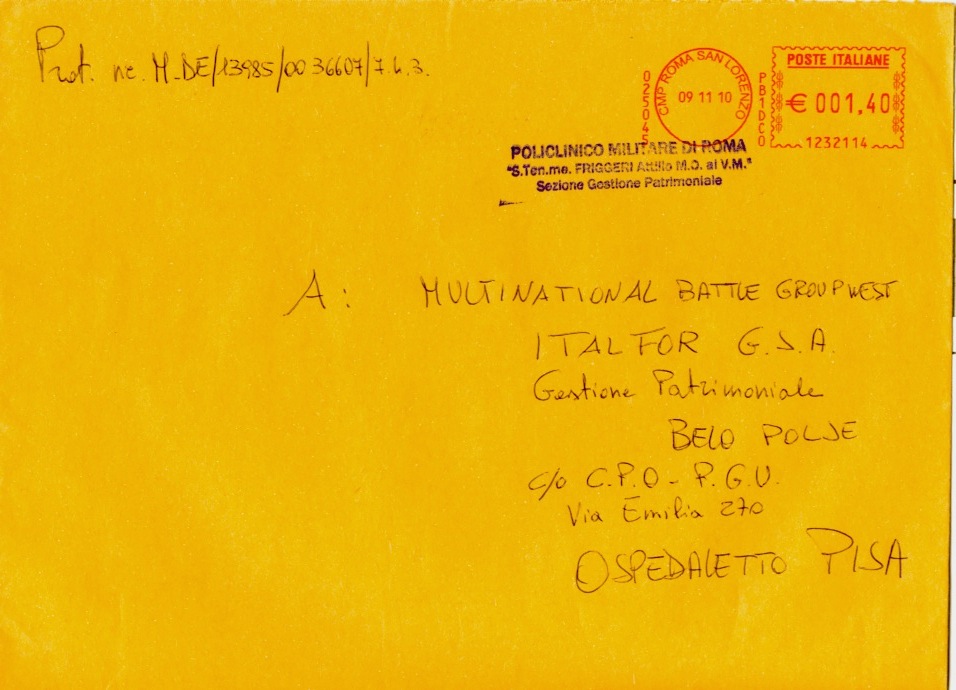 Prot. nr. M_DE/13985/0036607/7.4.3.
POSTE ITALIANE
€ 001,40
1232114
CMP ROMA SAN LORENZO
09 11 10
PB1DC0
POLICLINICO MILITARE DI ROMA
"S.Ten.me. FRIGGERI Attilio M.O. al V.M."
Sezione Gestione Patrimoniale
A: MULTINATIONAL BATTLE GROUP WEST
ITALFOR G.S.A.
Gestione Patrimoniale
BELO POLJE
c/o C.P.O - P.G.U.
Via Emilia 270
OSPEDALETTO PISA